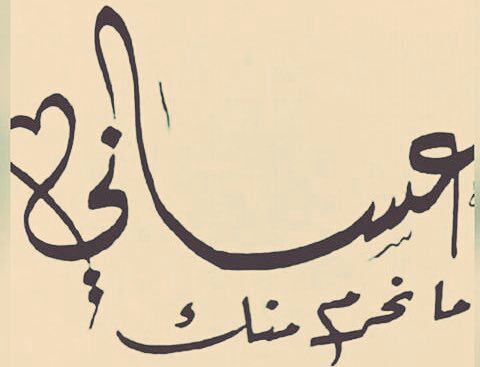 عساني
ما نحرم منك